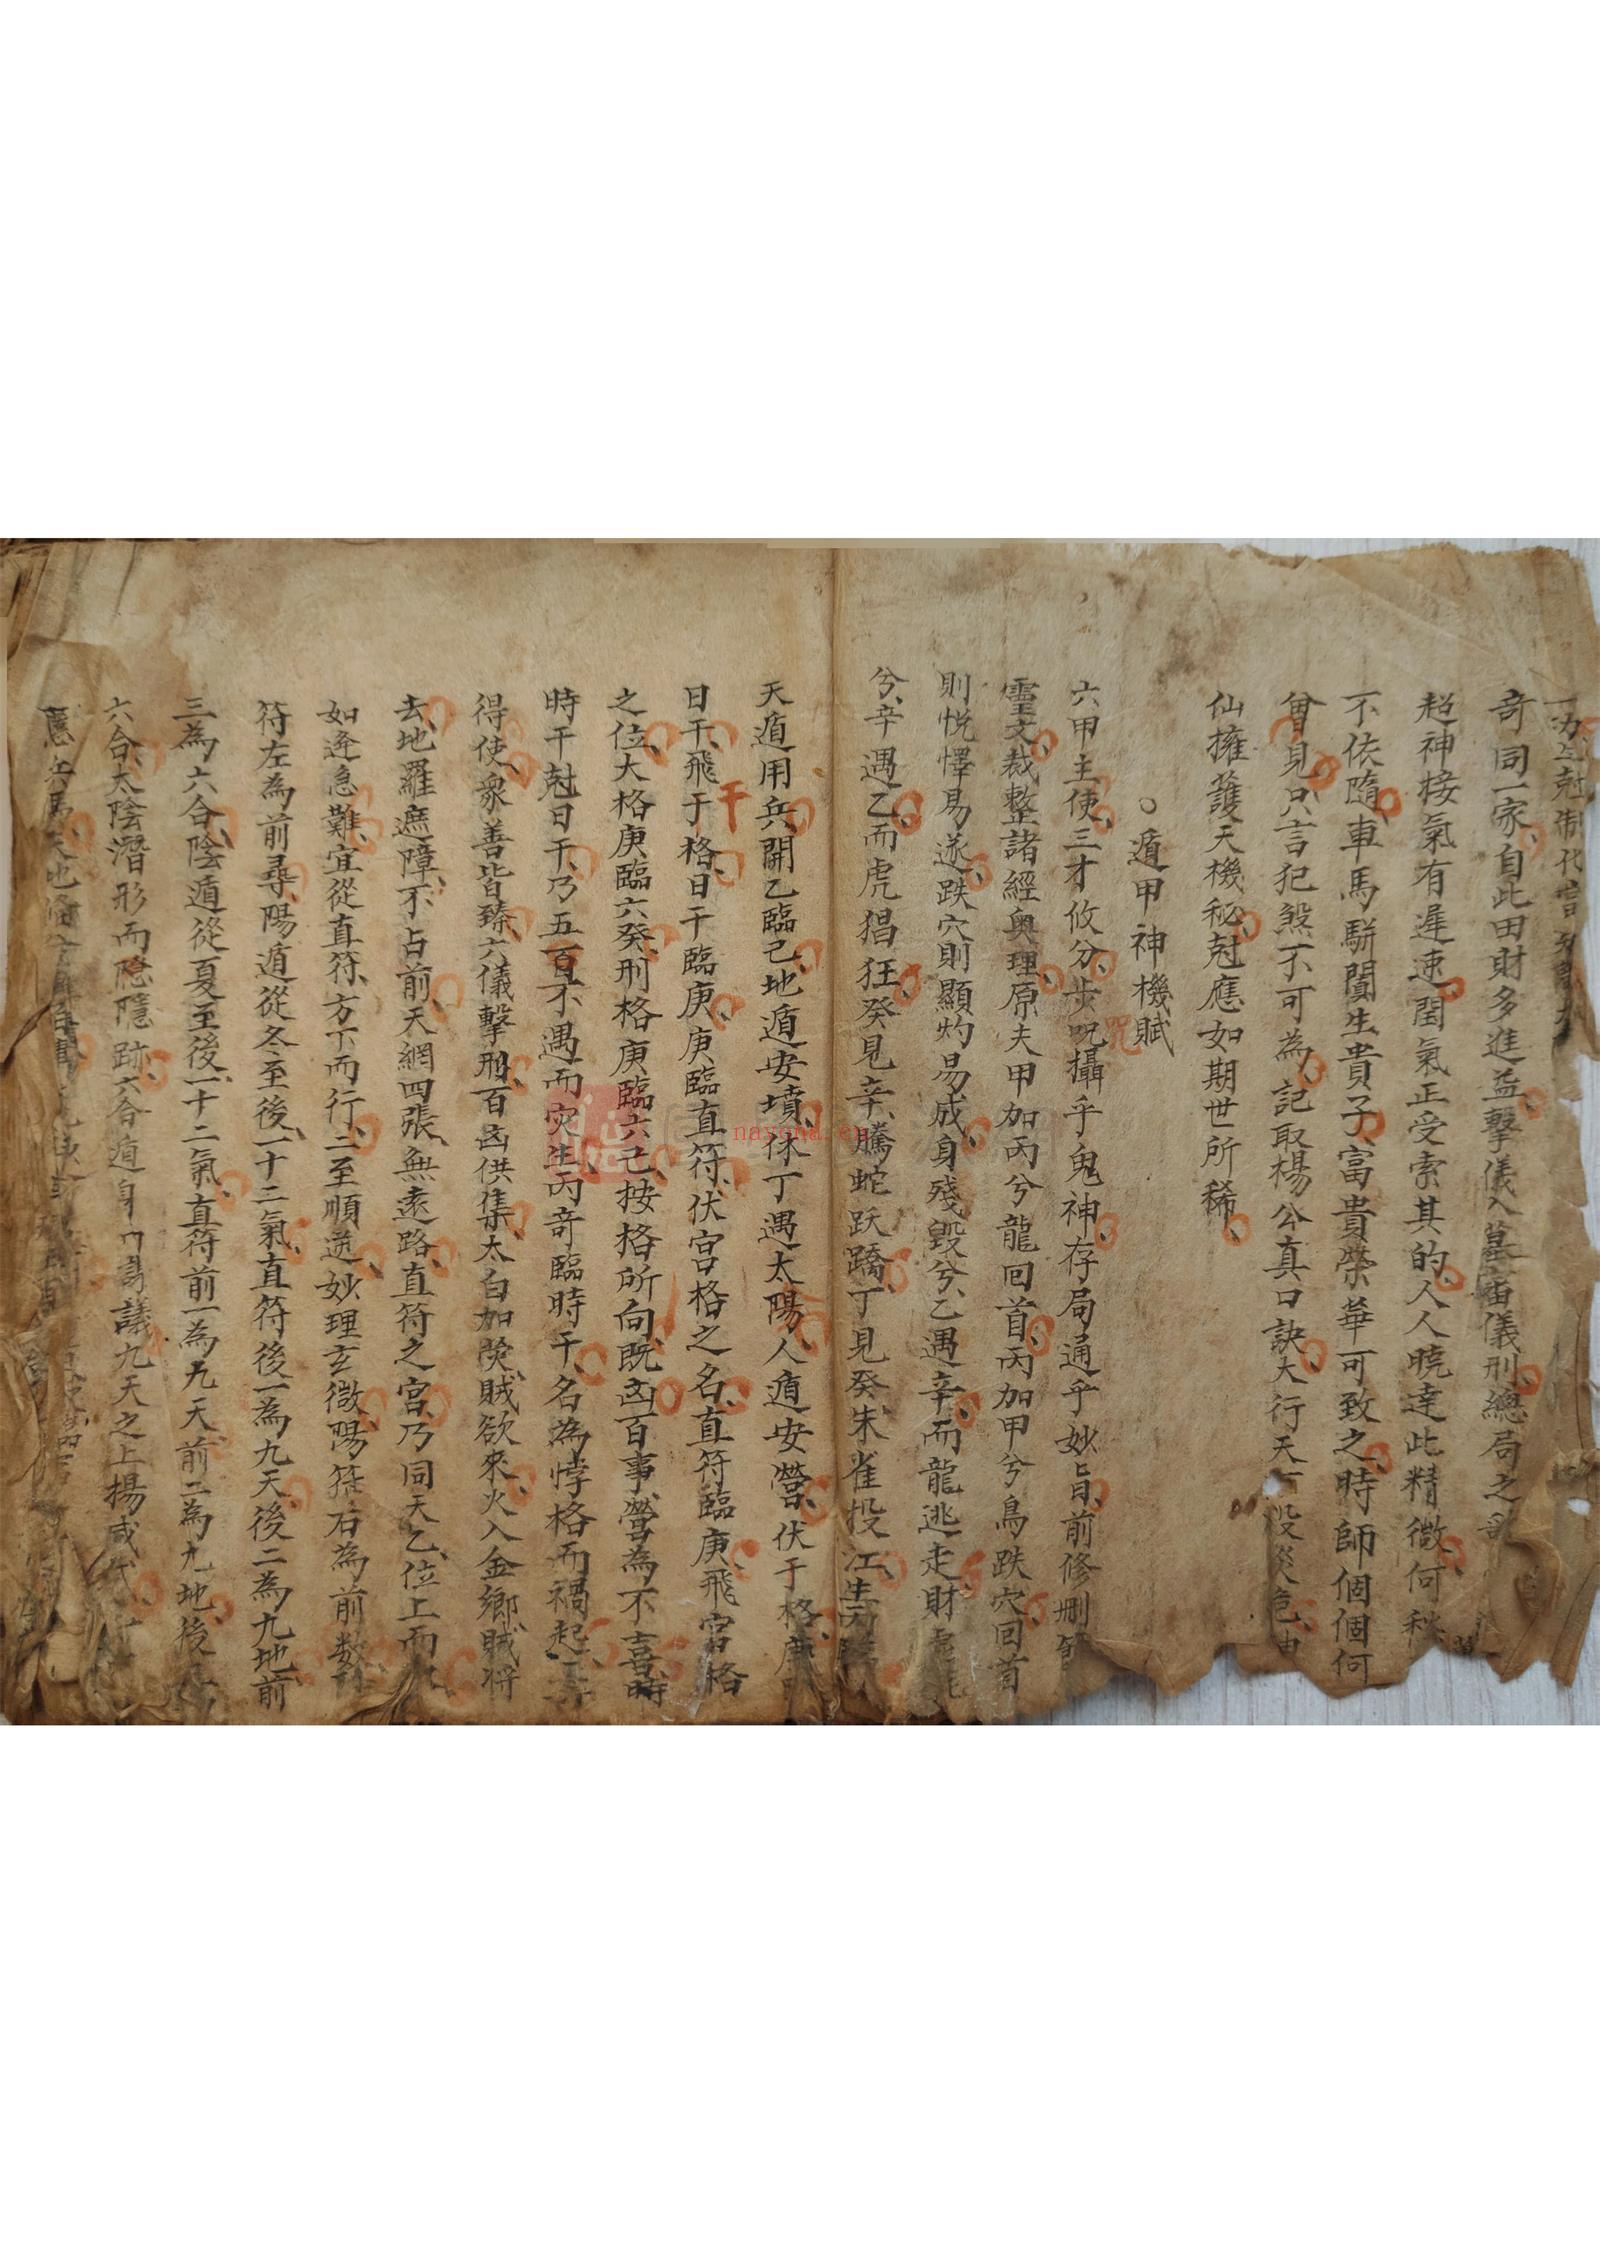 奇同一家自此田財多進益擊儀入墓宙儀刑總局之
超神接氣有遲速閏氣正受索其的人人曉達此精微何秋
不依隨車馬駢闐生貴子富貴榮華可致之時師個個何
會見只言犯煞不可為記取楊公真口訣大行天下沒災危由
仙擁護天機秘尅應如期世所稀
○遁甲神機賦
六甲主使三才攸分步呪攝乎鬼神存局通乎妙旨前修刪
靈文裁整諸經奧理原夫甲加丙兮龍回首丙加甲兮鳥跌穴回首
則悅懌易遂跌穴則顯灼易成身殘毀兮乙遇辛而龍逃走財
兮辛遇乙而虎猖狂癸見辛騰蛇跃蹻丁見癸朱雀投江生丙
天遁用兵開乙臨己地遁安墳休丁遇太陽人遁安營伏干格庚
日干飛于格日干臨庚庚臨直符伏宮格之名直符臨庚飛宮格
之位大格庚臨六癸刑格庚臨六己按格所向既凶百事營為不喜時
時干尅日干乃五百不遇而灾生丙奇臨時干名為悖格而禍起三
得使衆善皆臻六儀擊刑百凶供集太白加熒賊欲來火入金鄉賊将
去地羅遮障不占前天網四張無遠路直符之宮乃同天乙位上而
如逄急難宜從直符方下而行二至順逆妙理玄微陽符右為前数
符左為前尋陽遁從冬至後一十二氣直符後一為九天後二為九地前
三為六合陰遁從夏至後一十二氣直符前一為九天前二為九地後
六合太陰潛形而隐隱跡六合遁身 議九天之上揚威